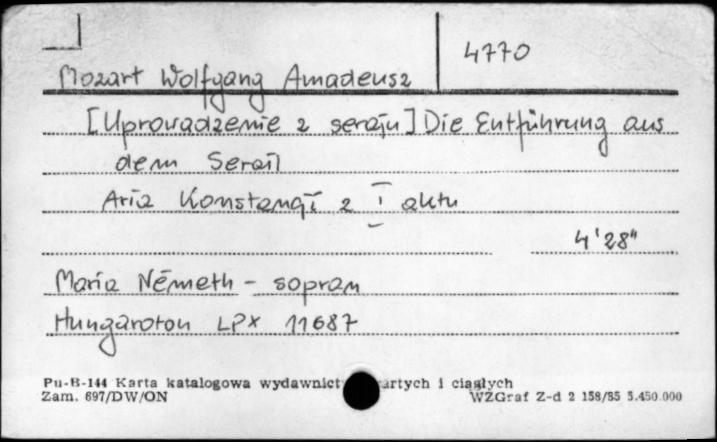 4770
Mozart Wolfgang Amadeusz
[Uprowadzenie z seraju] Die Entführung aus
dem Serail
Aria Konstancji z I aktu
4'28"
Maria Németh - sopran
Hungaroton LPX 11687
Pu-B-144 Karta katalogowa wydawnict artych i ciągłych
Zam. 697/DW/ON WZGraf Z-d 2 158/85 3.450.000